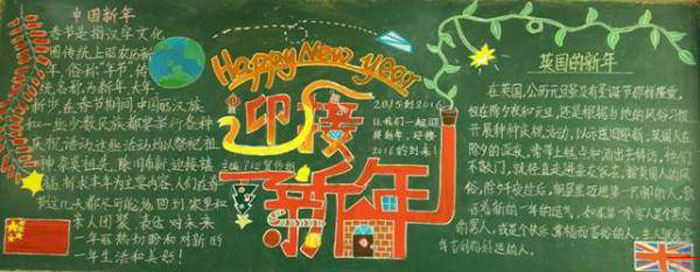 中国新年
春节是指汉字文化
圈传统上的农历新
年，俗称"年节"，传
统名称为新年、大年、
新岁，在春节期间，中国的汉族
和一些少数民族都要举行各种
庆祝活动，这些活动均以祭祀祖
神、祭奠祖先、除旧布新、迎禧接
福、祈求丰年为主要内容，人们在春
节这几天都尽可能地回到家里和
亲人团聚，表达对未来
一年的热切期盼和对新的
一年生活和美好！
Happy New year
迎接
新年
2015到2016
让我们一起迎
接新年，迎接
2016的到来！
英国的新年
在英国，公历元旦虽没有圣诞节那样隆重，
但在除夕夜和元旦，还是根据当地的风俗习
开展种种庆祝活动，以示送旧迎新。英国人在
除夕的深夜，常带上糕点和酒出去拜访，他们
不敲门，就径直走进亲友家去。按英国人的
俗，除夕千夜过后，朝屋里迈进第一只脚的人，
预示着新的一年的运气。如果第一个客人是个黑发
的男人，或是个快乐、幸福而富裕的人，主人就全
年吉利而好运的人。